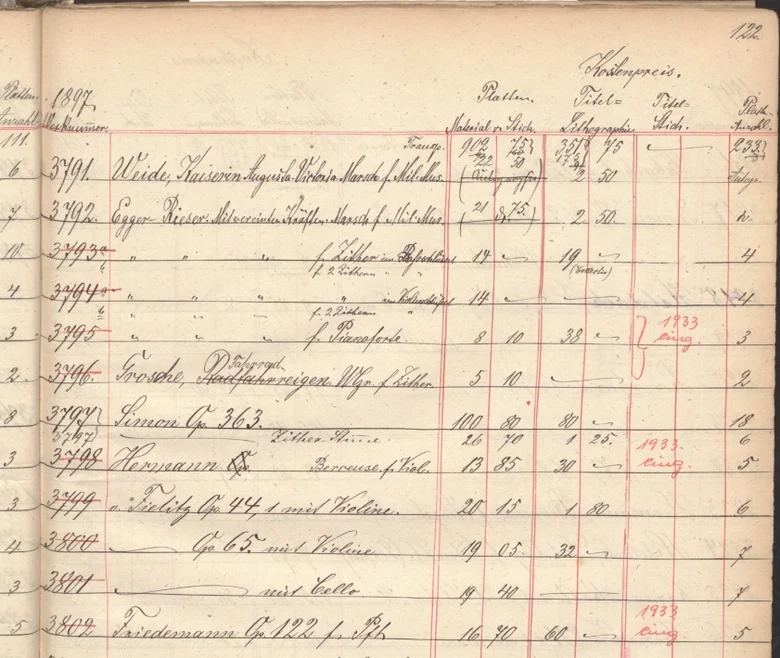 122.
Kostenpreis.
Platten- 1897. Platten. Titel= Titel= Platt.
Anzahl Werknummer: Material u. Stich. Lithographie Stich. Anzahl.
111. Transp. 902 75 351 75 233
722 50 173
6 3791. Weide, Kaiserin Augusta Victoria Marsch f. Mil. Mus. (Autographie) 2 50 Autogr.
7 3792. Egger Rieser. Mit vereinten Kräften. Marsch f. Mil. Mus. (21 75.) 2 50.
10 3793 a " " " f. Zither im 14 — 19 — 4
b f. 2 Zithern " "
4 3794 a " " " " im 14 — — 4
b " " " f. 2 Zithern "
3 3795 " " " f. Pianoforte. 8 10 38 — 1933 3
eing.
Fahrrad
2. 3796. Grosche, Radfahrreigen. Wgr. f. Zither. 5 10 — 2
8 3797 Simon Op. 363. 100 80 80 — 18
3797 — Zither-Stime. 26 70 1 25. 1933 6
3 3798 Hermann Op. Berceuse f. Viol. 13 85 30 — eing. 5
3 3799 v. Fielitz Op. 44, 1 mit Violine. 20 15 1 80 6
4 3800 — Op. 65. mit Violine 19 05. 32 — 7
3 3801 — mit Cello 19 40 — 7
1933
5 3802 Friedemann Op. 122 f. Pft. 16 70 60 — eing 5